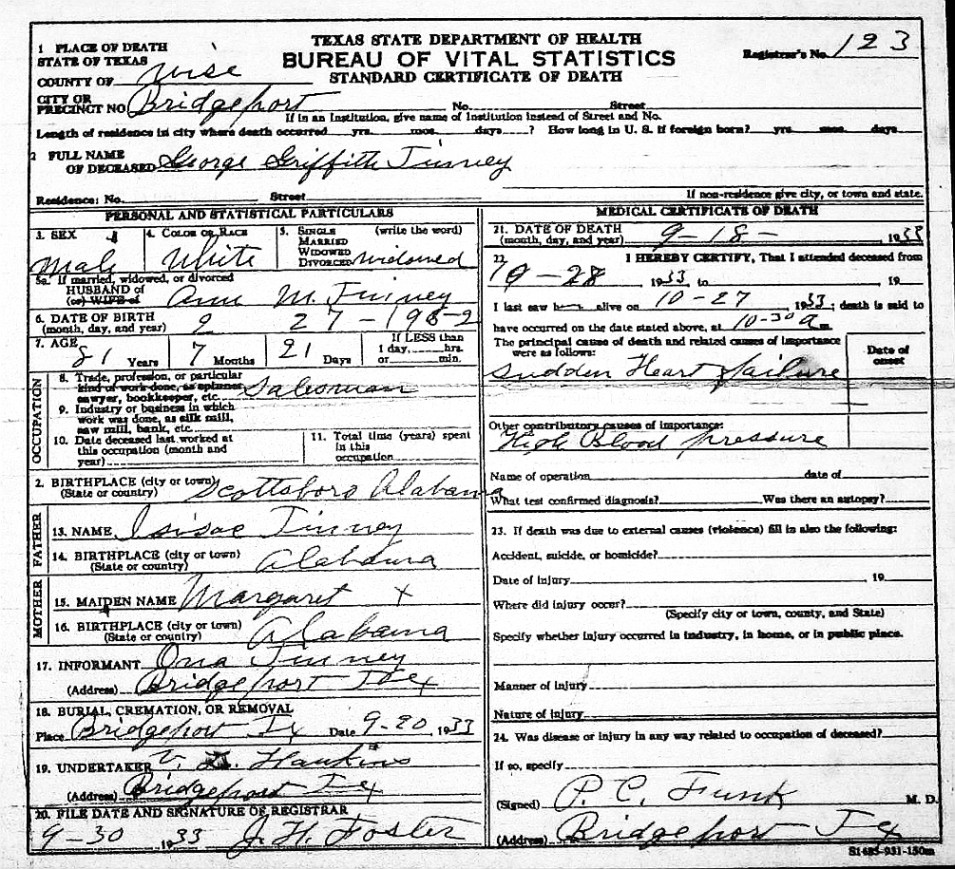 TEXAS STATE DEPARTMENT OF HEALTH
BUREAU OF VITAL STATISTICS
STANDARD CERTIFICATE OF DEATH
Registrar's No. 123
1 PLACE OF DEATH
STATE OF TEXAS
COUNTY OF Wise
CITY OR
PRECINCT NO Bridgeport No. Street
If in an Institution, give name of Institution instead of Street and No.
Length of residence in city where death occurred yrs. mos. days ? How long in U. S. if foreign born? yrs. mos. days
2 FULL NAME
OF DECEASED George Griffith Tinney
Residence: No. Street If non-residence give city, or town and state.
PERSONAL AND STATISTICAL PARTICULARS
3. SEX Male
4. COLOR OR RACE White
5. SINGLE (write the word)
MARRIED
WIDOWED
DIVORCED widowed
5a. If married, widowed, or divorced
HUSBAND OF
(or) WIFE of Ann M. Tinney
6. DATE OF BIRTH
(month, day, and year) 2 27-1952
7. AGE 81 Years 7 Months 21 Days
If LESS than
1 day, hrs.
or min.
OCCUPATION
8. Trade, profession, or particular
kind of work done, as spinner,
sawyer, bookkeeper, etc. Salesman
9. Industry or business in which
work was done, as silk mill,
saw mill, bank, etc.
10. Date deceased last worked at
this occupation (month and
year)
11. Total time (years) spent
in this
occupation
2. BIRTHPLACE (city or town)
(State or country) Scottsboro Alabama
FATHER
13. NAME Isisac Tinney
14. BIRTHPLACE (city or town)
(State or country) Alabama
MOTHER
15. MAIDEN NAME Margaret x
16. BIRTHPLACE (city or town)
(State or country) Alabama
17. INFORMANT Ona Tinney
(Address) Bridgeport Tex
18. BURIAL, CREMATION, OR REMOVAL
Place Bridgeport Tx Date 9-20, 1933
19. UNDERTAKER V. Hawkins
(Address) Bridgeport Tex
20. FILE DATE AND SIGNATURE OF REGISTRAR
9-30 1933 J. H. Foster
MEDICAL CERTIFICATE OF DEATH
21. DATE OF DEATH
(month, day, and year) 9-18- , 1933
22. I HEREBY CERTIFY, That I attended deceased from
9-28 , 1933, to , 19
I last saw h alive on 10-27 , 1933; death is said to
have occurred on the date stated above, at 10-30 a m.
The principal cause of death and related causes of importance
were as follows:
Date of
onset
Sudden Heart Failure
Other contributory causes of importance:
High Blood pressure
Name of operation date of
What test confirmed diagnosis? Was there an autopsy?
23. If death was due to external causes (violence) fill in also the following:
Accident, suicide, or homicide?
Date of injury , 19
Where did injury occur?
(Specify city or town, county, and State)
Specify whether injury occurred in industry, in home, or in public place.
Manner of injury
Nature of injury
24. Was disease or injury in any way related to occupation of deceased?
If so, specify
(Signed) P. C. Funk M. D.
(Address) Bridgeport Tex
S1485-931-150m